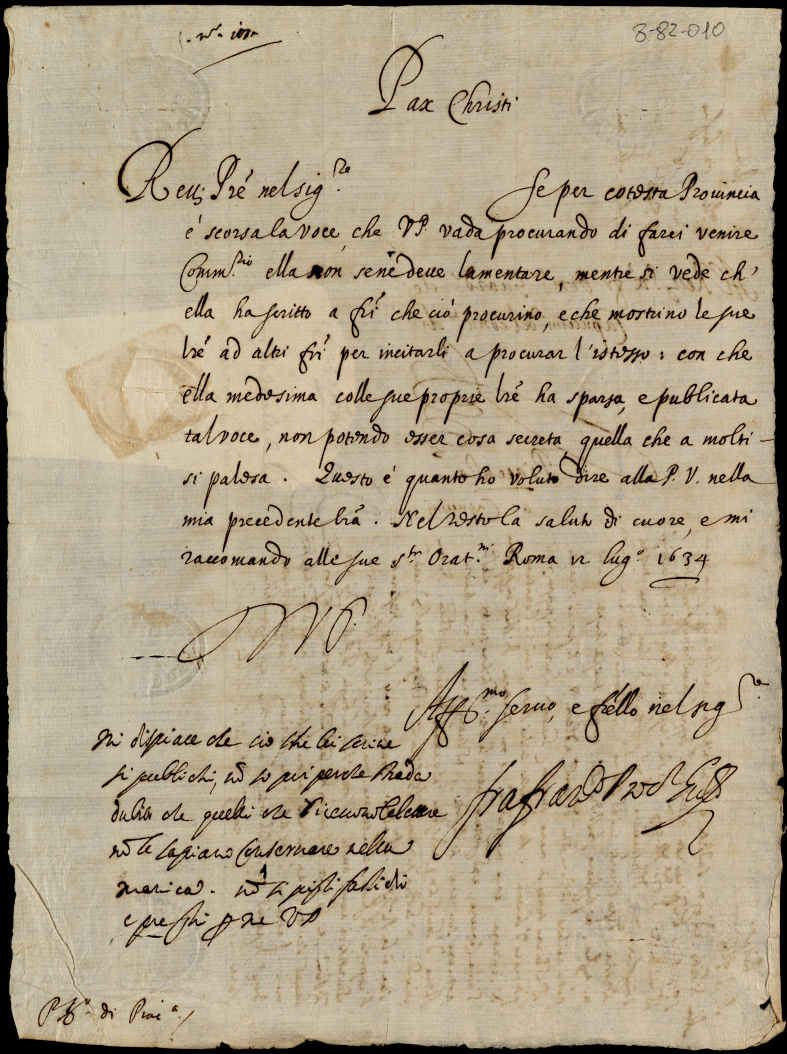 8-82-010
Pax Christi
Reu: Pre nel sig.re Se per cotesta Prouincia
è scorsa la voce, che V.P. vada procurando di farci venire
Comm.rio ella non sene deue lamentare, mentre si vede ch'
ella ha scritto a fri che ciò procurino, e che mostrino le sue
lre ad altri fri per incitarli a procurar l'istesso: con che
ella medesima colle sue proprie lre ha sparsa, e publicata
tal voce, non potendo esser cosa secreta, quella che a molti
si palesa. Questo è quanto ho voluto dire alla P. V. nella
mia precedente lra. Nel resto la saluto di cuore, e mi
raccomando alle sue s.te Orat.ni Roma 12 lug.o 1634
VP.
Aff.mo seruo, e frello nel sig.re
Mi dispiace che ciò che lei scriue
si publichi,
dubito che quelli che riceuono le lettere
no le sapiano conseruare nella
manica. no si pigli fastidio
e preghi p me VP